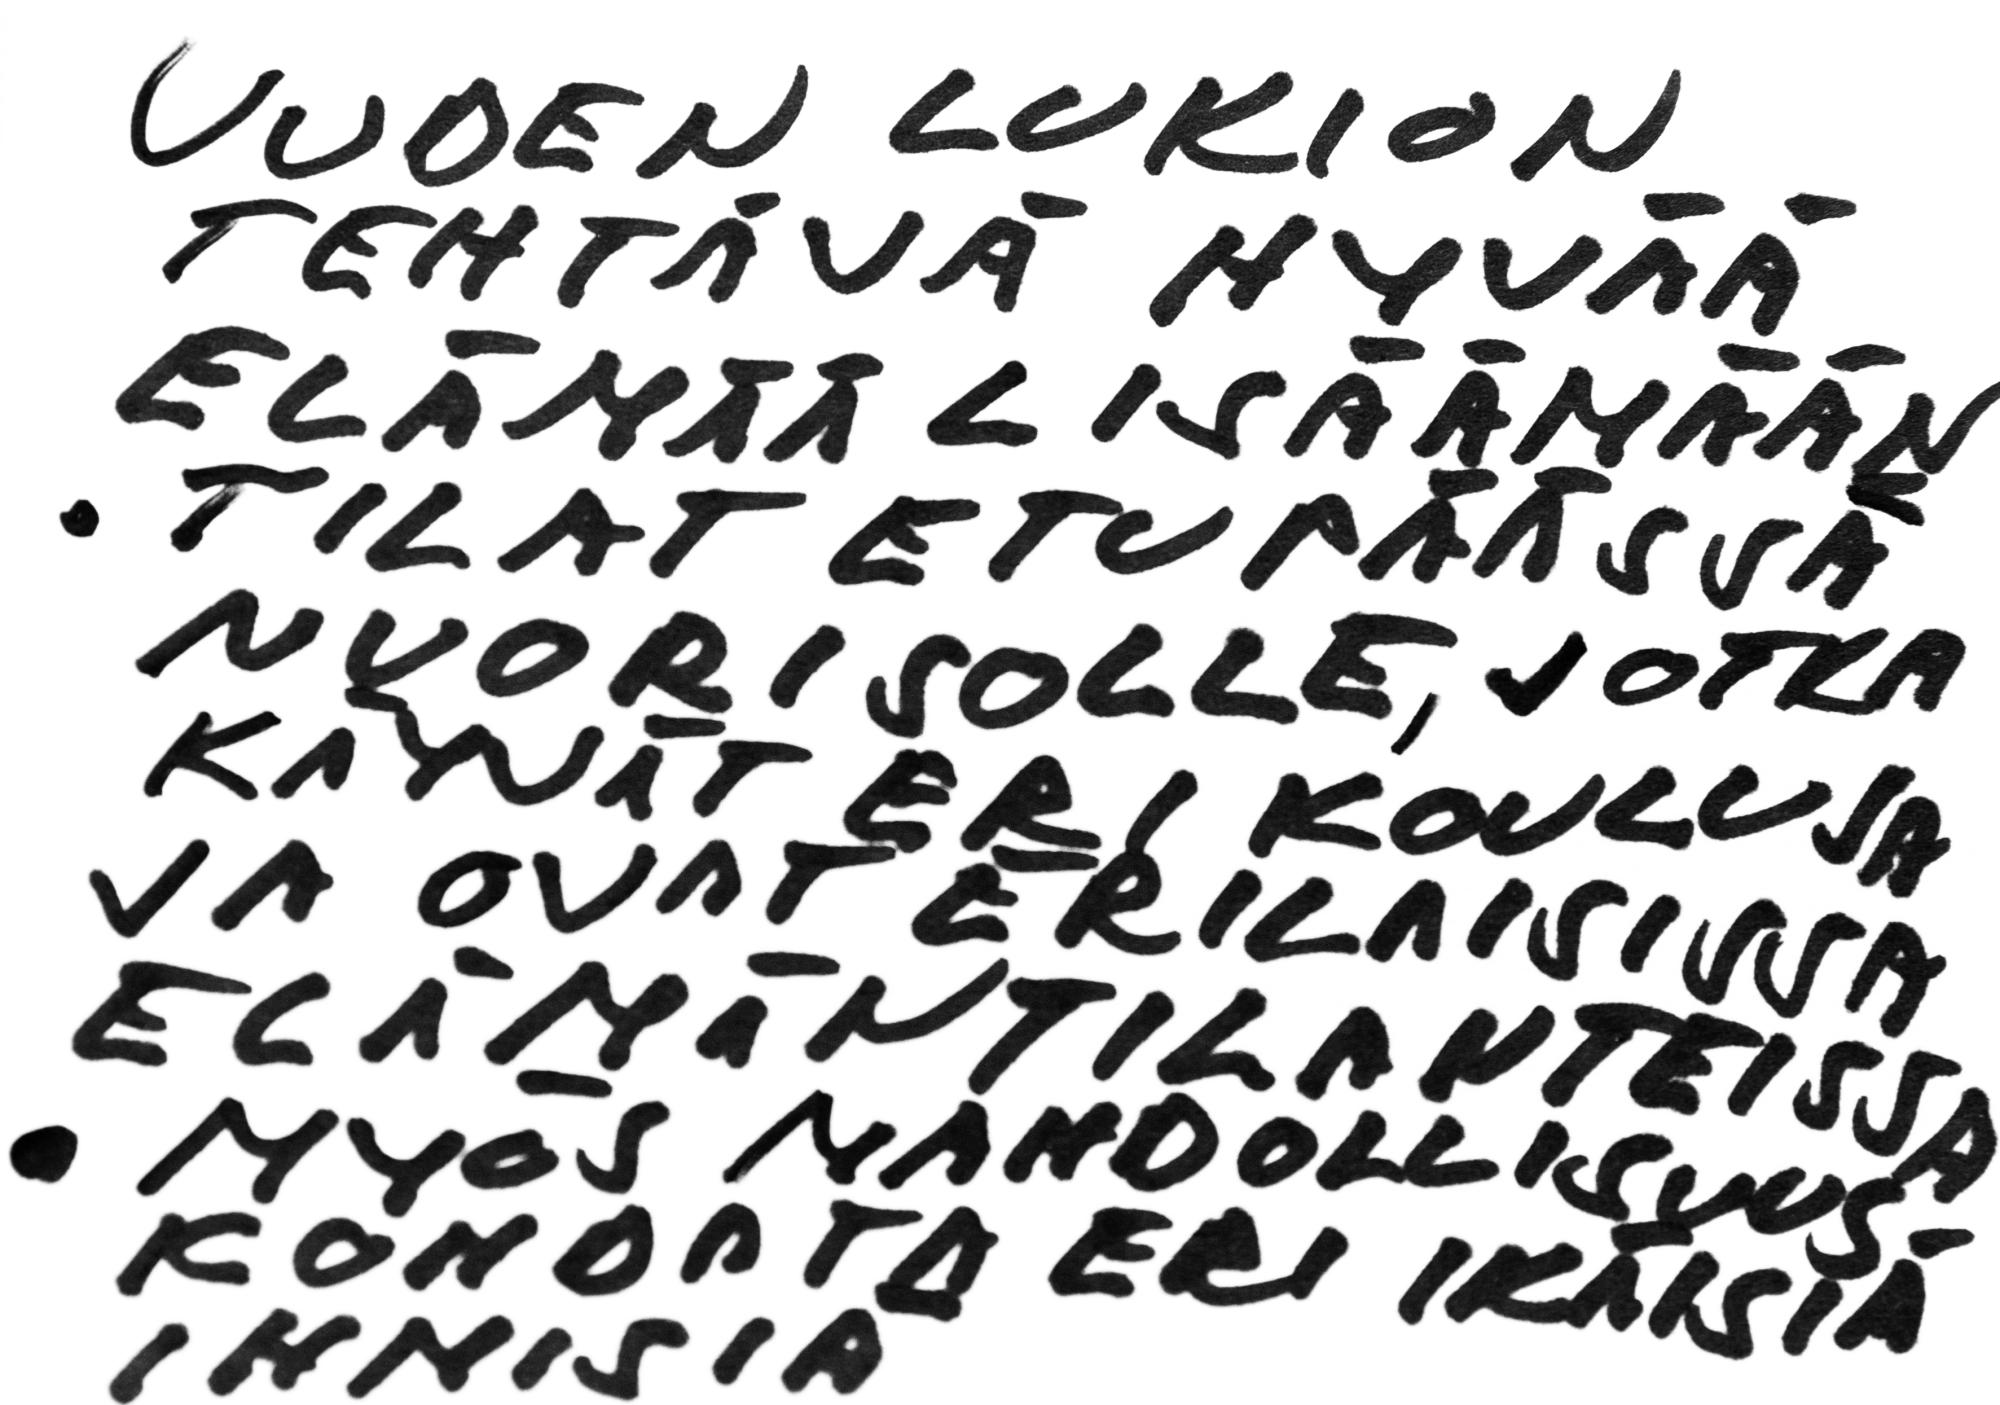 UUDEN LUKION
TEHTÄVÄ HYVÄÄ
ELÄMÄÄ LISÄÄMÄÄN
• TILAT ETUPÄÄSSÄ
NUORISOLLE, JOTKA
KÄYVÄT ERI KOULUSA
JA OVAT ERILAISISSA
ELÄMÄNTILANTEISSA
• MYÖS MAHDOLLISUUS
KOHDATA ERI IKÄISIÄ
IHMISIÄ